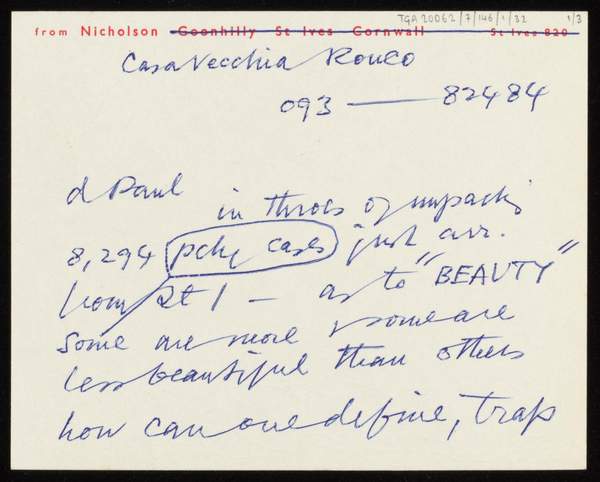 TGA 20062/7/146/1/32 1/3
from Nicholson Goonhilly St Ives Cornwall St Ives 820
Casa Vecchia Ronco
093 — 82484
d Paul in throes of unpacking
8,294 pckg cases just arr.
from St I — as to "BEAUTY"
some are more & some are
less beautiful than others
how can one define, trap